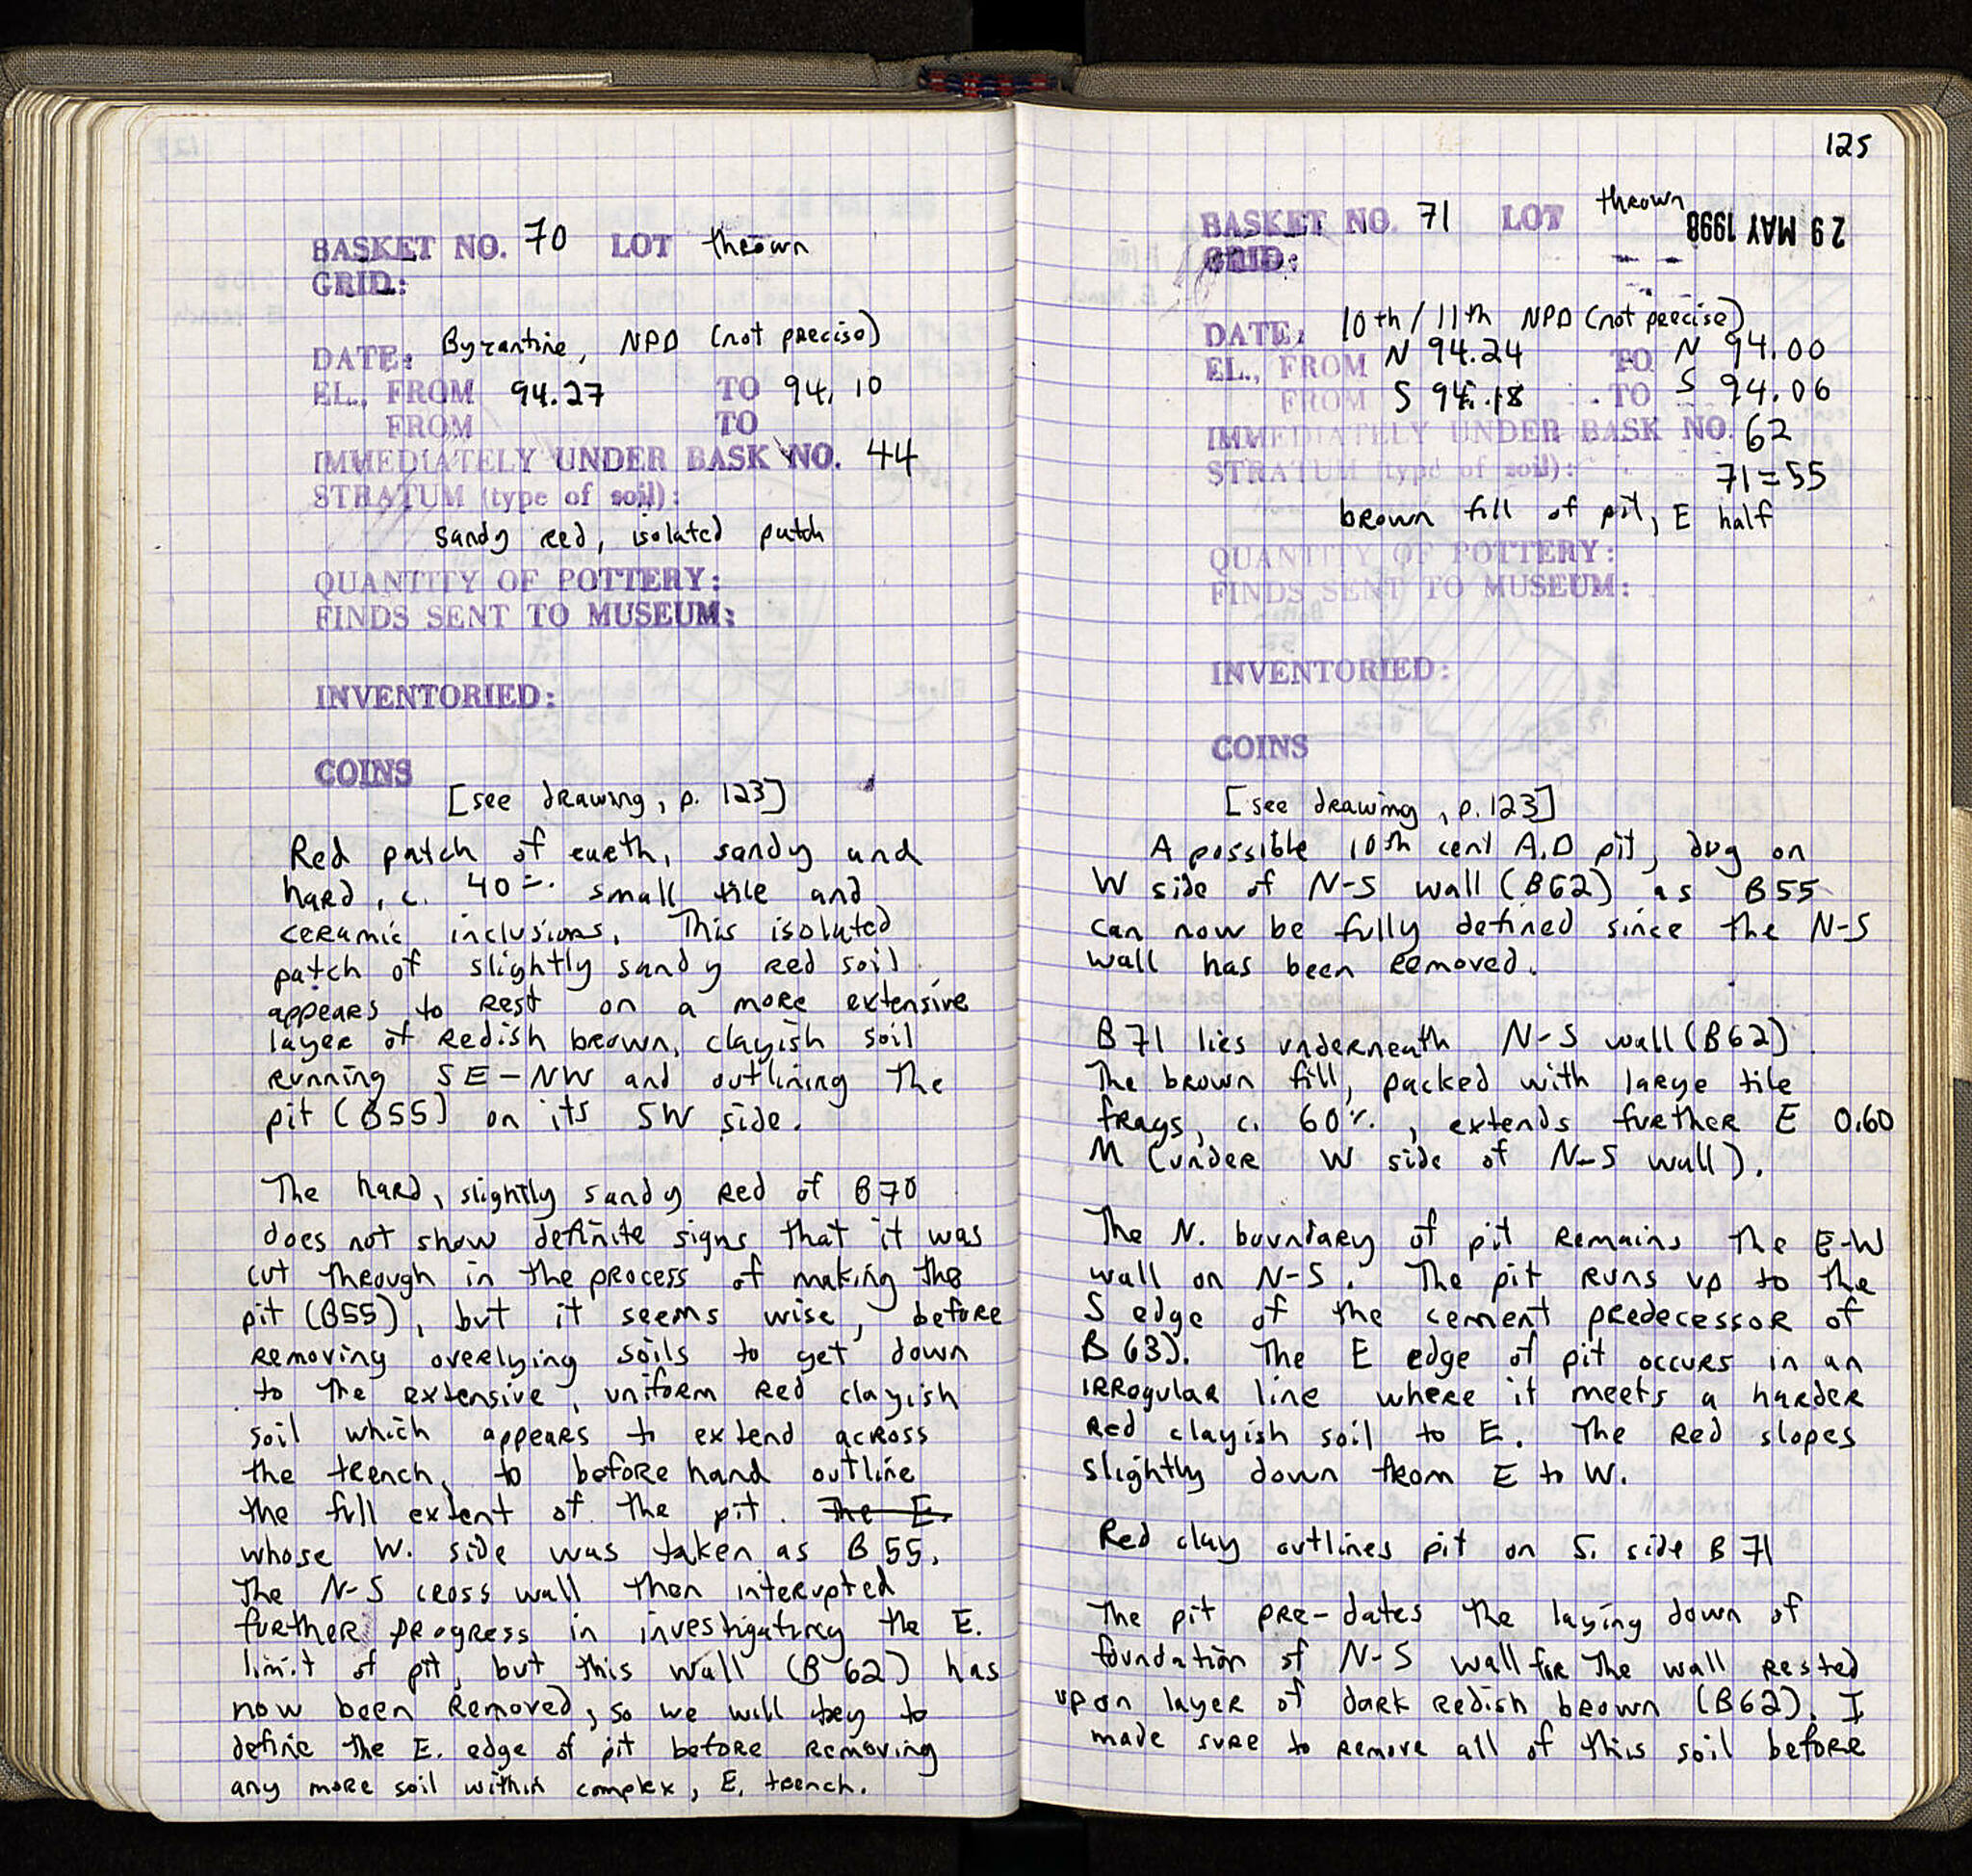 BASKET NO. 70 LOT thrown
GRID:
DATE: Byzantine, NPD (not precise)
EL., FROM 94.27 TO 94.10
FROM TO
IMMEDIATELY UNDER BASK NO. 44
STRATUM (type of soil):
sandy red, isolated patch
QUANTITY OF POTTERY:
FINDS SENT TO MUSEUM:
INVENTORIED:
COINS
[see drawing, p. 123]
Red patch of earth, sandy and
hard, c. 40%. small tile and
ceramic inclusions. This isolated
patch of slightly sandy red soil
appears to rest on a more extensive
layer of redish brown, clayish soil
running SE-NW and outlining the
pit (B55) on its SW side.
The hard, slightly sandy red of B70
does not show definite signs that it was
cut through in the process of making the
pit (B55), but it seems wise, before
removing overlying soils to get down
to the extensive, uniform red clayish
soil which appears to extend across
the trench, to before hand outline
the full extent of the pit. The E.
whose W. side was taken as B55.
The N-S cross wall then interupted
further progress in investigating the E.
limit of pit, but this wall (B 62) has
now been removed, so we will try to
define the E. edge of pit before removing
any more soil within complex, E. trench.
125
BASKET NO. 71 LOT thrown
29 MAY 1998
GRID:
DATE: 10th/11th NPD (not precise)
EL., FROM N 94.24 TO N 94.00
FROM S 94.18 TO S 94.06
IMMEDIATELY UNDER BASK NO. 62
STRATUM (type of soil): 71=55
brown fill of pit, E half
QUANTITY OF POTTERY:
FINDS SENT TO MUSEUM:
INVENTORIED:
COINS
[see drawing, p.123]
A possible 10th cent A.D pit, dug on
W side of N-S wall (B62) as B55
can now be fully defined since the N-S
wall has been removed.
B71 lies underneath N-S wall (B62).
The brown fill, packed with large tile
frags, c. 60%, extends further E 0.60
M (under W side of N-S wall).
The N. boundary of pit remains the E-W
wall on N-S. The pit runs up to the
S edge of the cement predecessor of
B63). The E edge of pit occurs in an
irrogular line where it meets a harder
red clayish soil to E. The red slopes
slightly down from E to W.
Red clay outlines pit on S. side B71
The pit pre-dates the laying down of
foundation of N-S wall for the wall rested
upon layer of dark redish brown (B62). I
made sure to remove all of this soil before